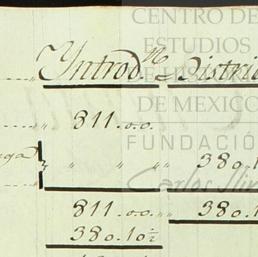 CENTRO DE
ESTUDIOS
DE MEXICO
FUNDACIÓN
Carlos Slim
Yntrod.n Distri
811.0.0.
" " " 380.1
811.0.0 380.1
380.10½